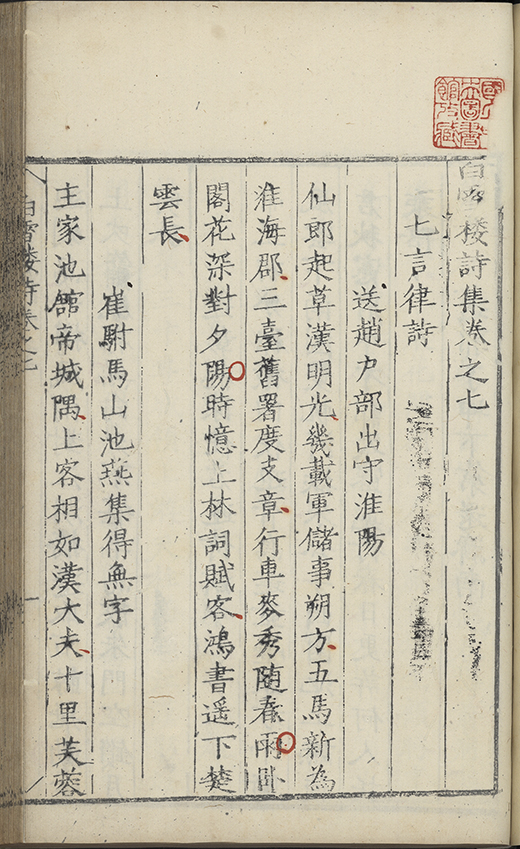 國立中
央圖書
館收藏
白雪樓詩集卷之七
七言律詩
送趙户部出守淮陽
仙郎起草漢明光幾載軍儲事朔方五馬新為
淮海郡三臺舊署度支章行車麥秀隨春雨卧
閣花深對夕陽時憶上林詞賦客鴻書遥下楚
雲長
崔駙馬山池燕集得無字
主家池館帝城隅上客相如漢大夫十里芙蓉
白雪樓詩卷之七
一